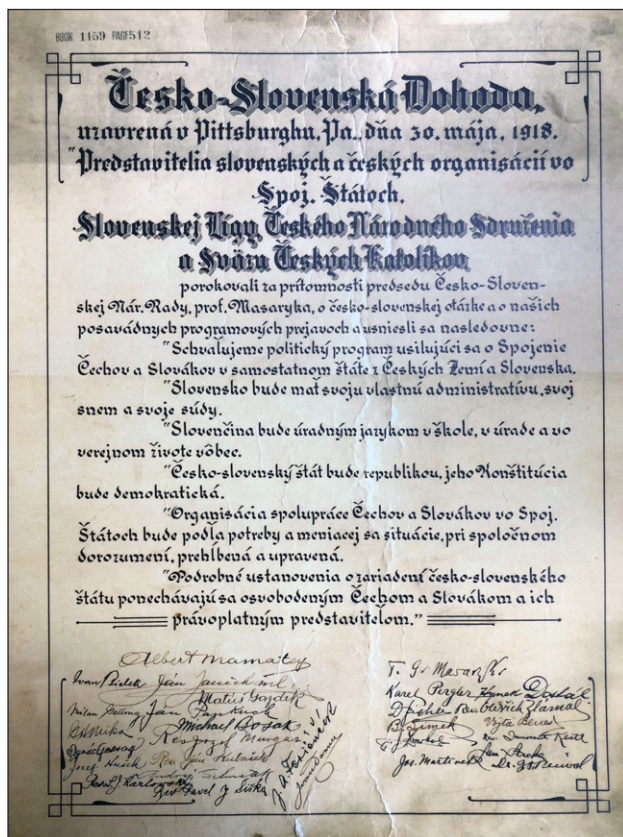 BOOK 1159 PAGE 512
Česko-Slovenská Dohoda,
uzavrená v Pittsburghu, Pa., dňa 30. mája, 1918.
"Predstavitelia slovenských a českých organisácií vo
Spoj. Štátoch.
Slovenskej Ligy, Českého Národného Sdruženia
a Sväzu Českých Katolíkov
porokovali za prítomnosti predsedu Česko-Sloven-
skej Nár. Rady, prof. Masaryka, o česko-slovenskej otázke a o našich
posavádnych programových prejavoch a usniesli sa nasledovne:
"Schvaľujeme politický program usilujúci sa o Spojenie
Čechov a Slovákov v samostatnom štáte z Českých Zemí a Slovenska.
"Slovensko bude mať svoju vlastnú administratívu, svoj
snem a svoje súdy.
"Slovenčina bude úradným jazykom v škole, v úrade a vo
verejnom živote vôbec.
"Česko-slovenský štát bude republikou, jeho Konštitúcia
bude demokratická.
"Organisácia spolupráce Čechov a Slovákov vo Spoj.
Štátoch bude podľa potreby a meniacej sa situácie, pri spoločnom
dorozumení, prehĺbená a upravená.
"Podrobné ustanovenia o zariadení česko-slovenského
štátu ponechávajú sa osvobodeným Čechom a Slovákom a ich
právoplatným predstaviteľom."
Albert Mamatey
T. G. Masaryk
Ivan Bielek Ján Janček ml
Karel Pergler Hynek Dostál
Matúš Gazdík
Rev. Oldřich Zlámal
Milan Getting
Michail Bosák
B. Šimek Vojta Beneš
Jozef Hušek
Jos. Martinek
Rev. Pavel J Šiška